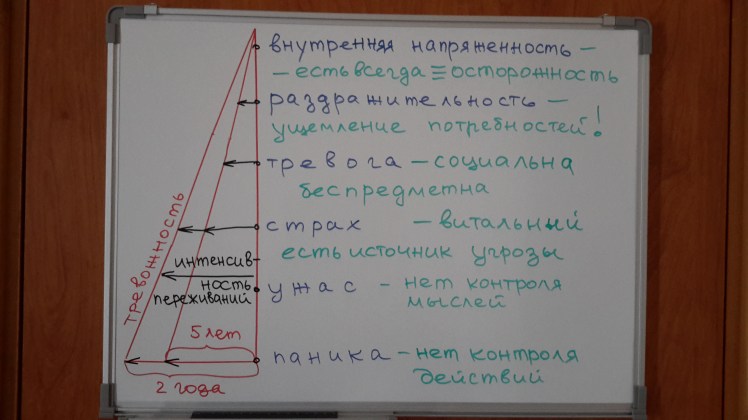 внутренняя напряженность –
– есть всегда ≡ осторожность
раздражительность –
ущемление потребностей!
тревога – социальна
беспредметна
страх – витальный
есть источник угрозы
ужас – нет контроля
мыслей
паника – нет контроля
действий
тревожность
интенсив-
ность
переживаний
5 лет
2 года